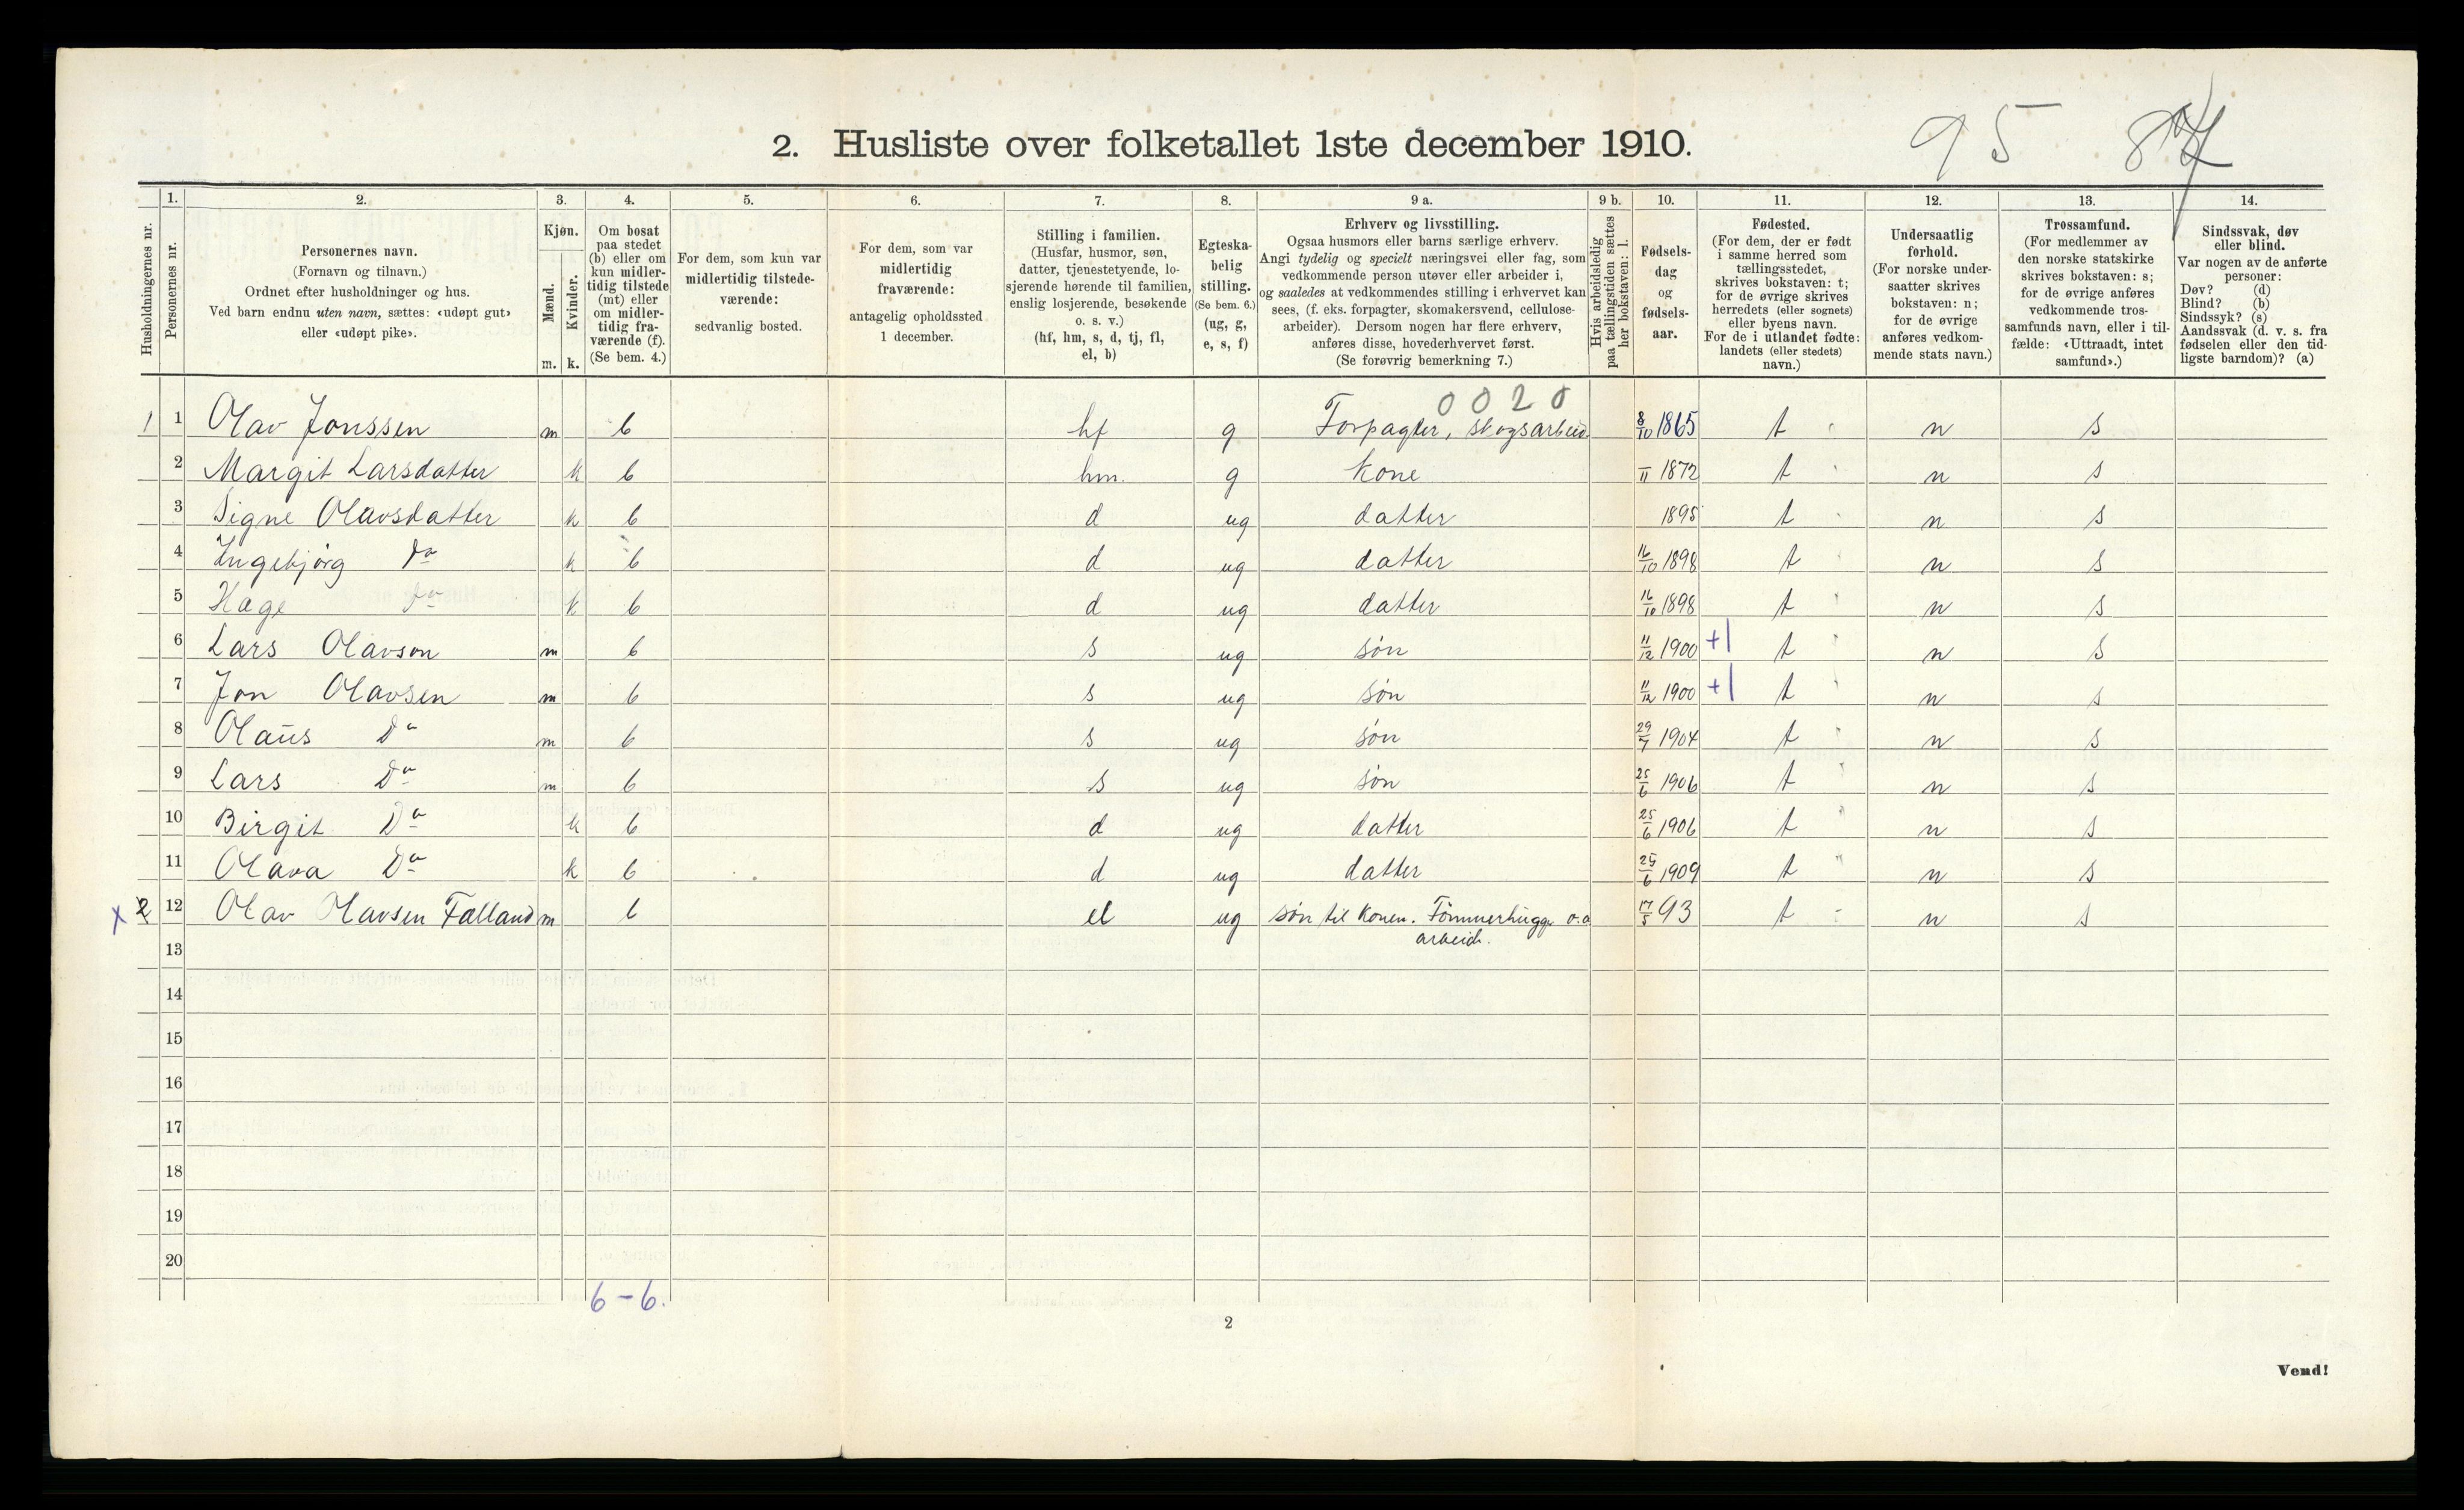 95 87
2. Husliste over folketallet 1ste december 1910.
Husholdningernes nr.
1. Personernes nr.
2. Personernes navn. (Fornavn og tilnavn.) Ordnet efter husholdninger og hus. Ved barn endnu uten navn, sættes: «udøpt gut» eller «udøpt pike».
3. Kjøn. Mænd. m. Kvinder. k.
4. Om bosat paa stedet (b) eller om kun midlertidig tilstede (mt) eller om midlertidig fraværende (f). (Se bem. 4.)
5. For dem, som kun var midlertidig tilstedeværende: sedvanlig bosted.
6. For dem, som var midlertidig fraværende: antagelig opholdssted 1 december.
7. Stilling i familien. (Husfar, husmor, søn, datter, tjenestetyende, losjerende hørende til familien, enslig losjerende, besøkende o. s. v.) (hf, hm, s, d, tj, fl, el, b)
8. Egteskabelig stilling. (Se bem. 6.) (ug, g, e, s, f)
9 a. Erhverv og livsstilling. Ogsaa husmors eller barns særlige erhverv. Angi tydelig og specielt næringsvei eller fag, som vedkommende person utøver eller arbeider i, og saaledes at vedkommendes stilling i erhvervet kan sees, (f. eks. forpagter, skomakersvend, cellulosearbeider). Dersom nogen har flere erhverv, anføres disse, hovederhvervet først. (Se forøvrig bemerkning 7.)
9 b. Hvis arbeidsledig paa tællingstiden sættes her bokstaven: l.
10. Fødselsdag og fødselsaar.
11. Fødested. (For dem, der er født i samme herred som tællingsstedet, skrives bokstaven: t; for de øvrige skrives herredets (eller sognets) eller byens navn. For de i utlandet fødte: landets (eller stedets) navn.)
12. Undersaatlig forhold. (For norske undersaatter skrives bokstaven: n; for de øvrige anføres vedkommende stats navn.)
13. Trossamfund. (For medlemmer av den norske statskirke skrives bokstaven: s; for de øvrige anføres vedkommende trossamfunds navn, eller i tilfælde: «Uttraadt, intet samfund».)
14. Sindssvak, døv eller blind. Var nogen av de anførte personer: Døv? (d) Blind? (b) Sindssyk? (s) Aandssvak (d. v. s. fra fødselen eller den tidligste barndom)? (a)
0 0 2 0
1 1 Olav Jonssen m b hf g Forpagter, skogsarbeid. 8/10 1865 t n s
2 Margit Larsdatter k b hm. g kone 1872 t n s
3 Signe Olavsdatter k b d ug datter 1895 t n s
4 Ingebjørg do k b d ug datter 16/10 1898 t n s
5 Hæge do k b d ug datter 16/10 1898 t n s
6 Lars Olavson m b s ug søn 11/12 1900 +1 t n s
7 Jon Olavsen m b s ug søn 11/12 1900 +1 t n s
8 Olaus Do m b s ug søn 29/7 1904 t n s
9 Lars Do m b s ug søn 25/6 1906 t n s
10 Birgit Do k b d ug datter 25/6 1906 t n s
11 Olava Do k b d ug datter 25/6 1909 t n s
x 2 12 Olav Olavsen Falland m b el ug søn til konen. Tømmerhugge o.a. arbeid. 17/5 93 t - n s
13
14
15
16
17
18
19
20
6 - 6.
2
Vend!